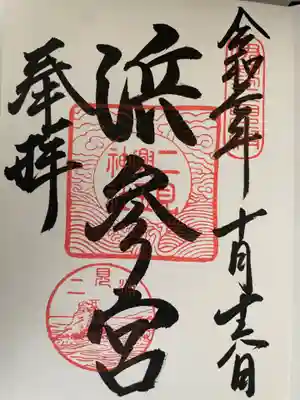 令和二年 十月十六日
浜参宮
奉拝
二見
興玉
神社
二見